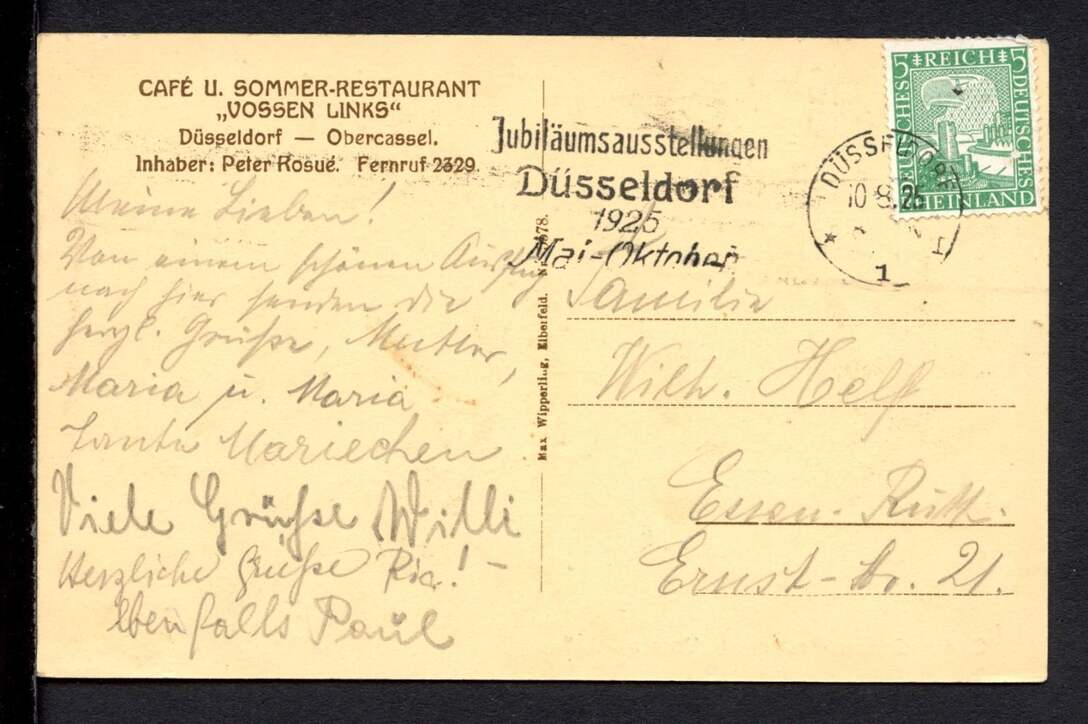 CAFÉ U. SOMMER-RESTAURANT
„VOSSEN LINKS“
Düsseldorf — Obercassel.
Inhaber: Peter Rosué. Fernruf 2329.
Meine Lieben!
Von einem schönen Ausflug
nach hier senden die
herzl. Grüße, Mutter,
Maria u. Maria
Tante Mariechen
Viele Grüße Willi
Herzliche Grüße Ria! –
Ebenfalls Paul
Max Wipperling, Elberfeld.
Jubiläumsausstellungen
Düsseldorf
1925
Mai-Oktober
DÜSSELDORF
10.8.25
1
5 REICH 5
DEUTSCHES
DEUTSCHES
RHEINLAND
Familie
Wilh. Helf
Essen-Rütt.
Ernst-str. 21.